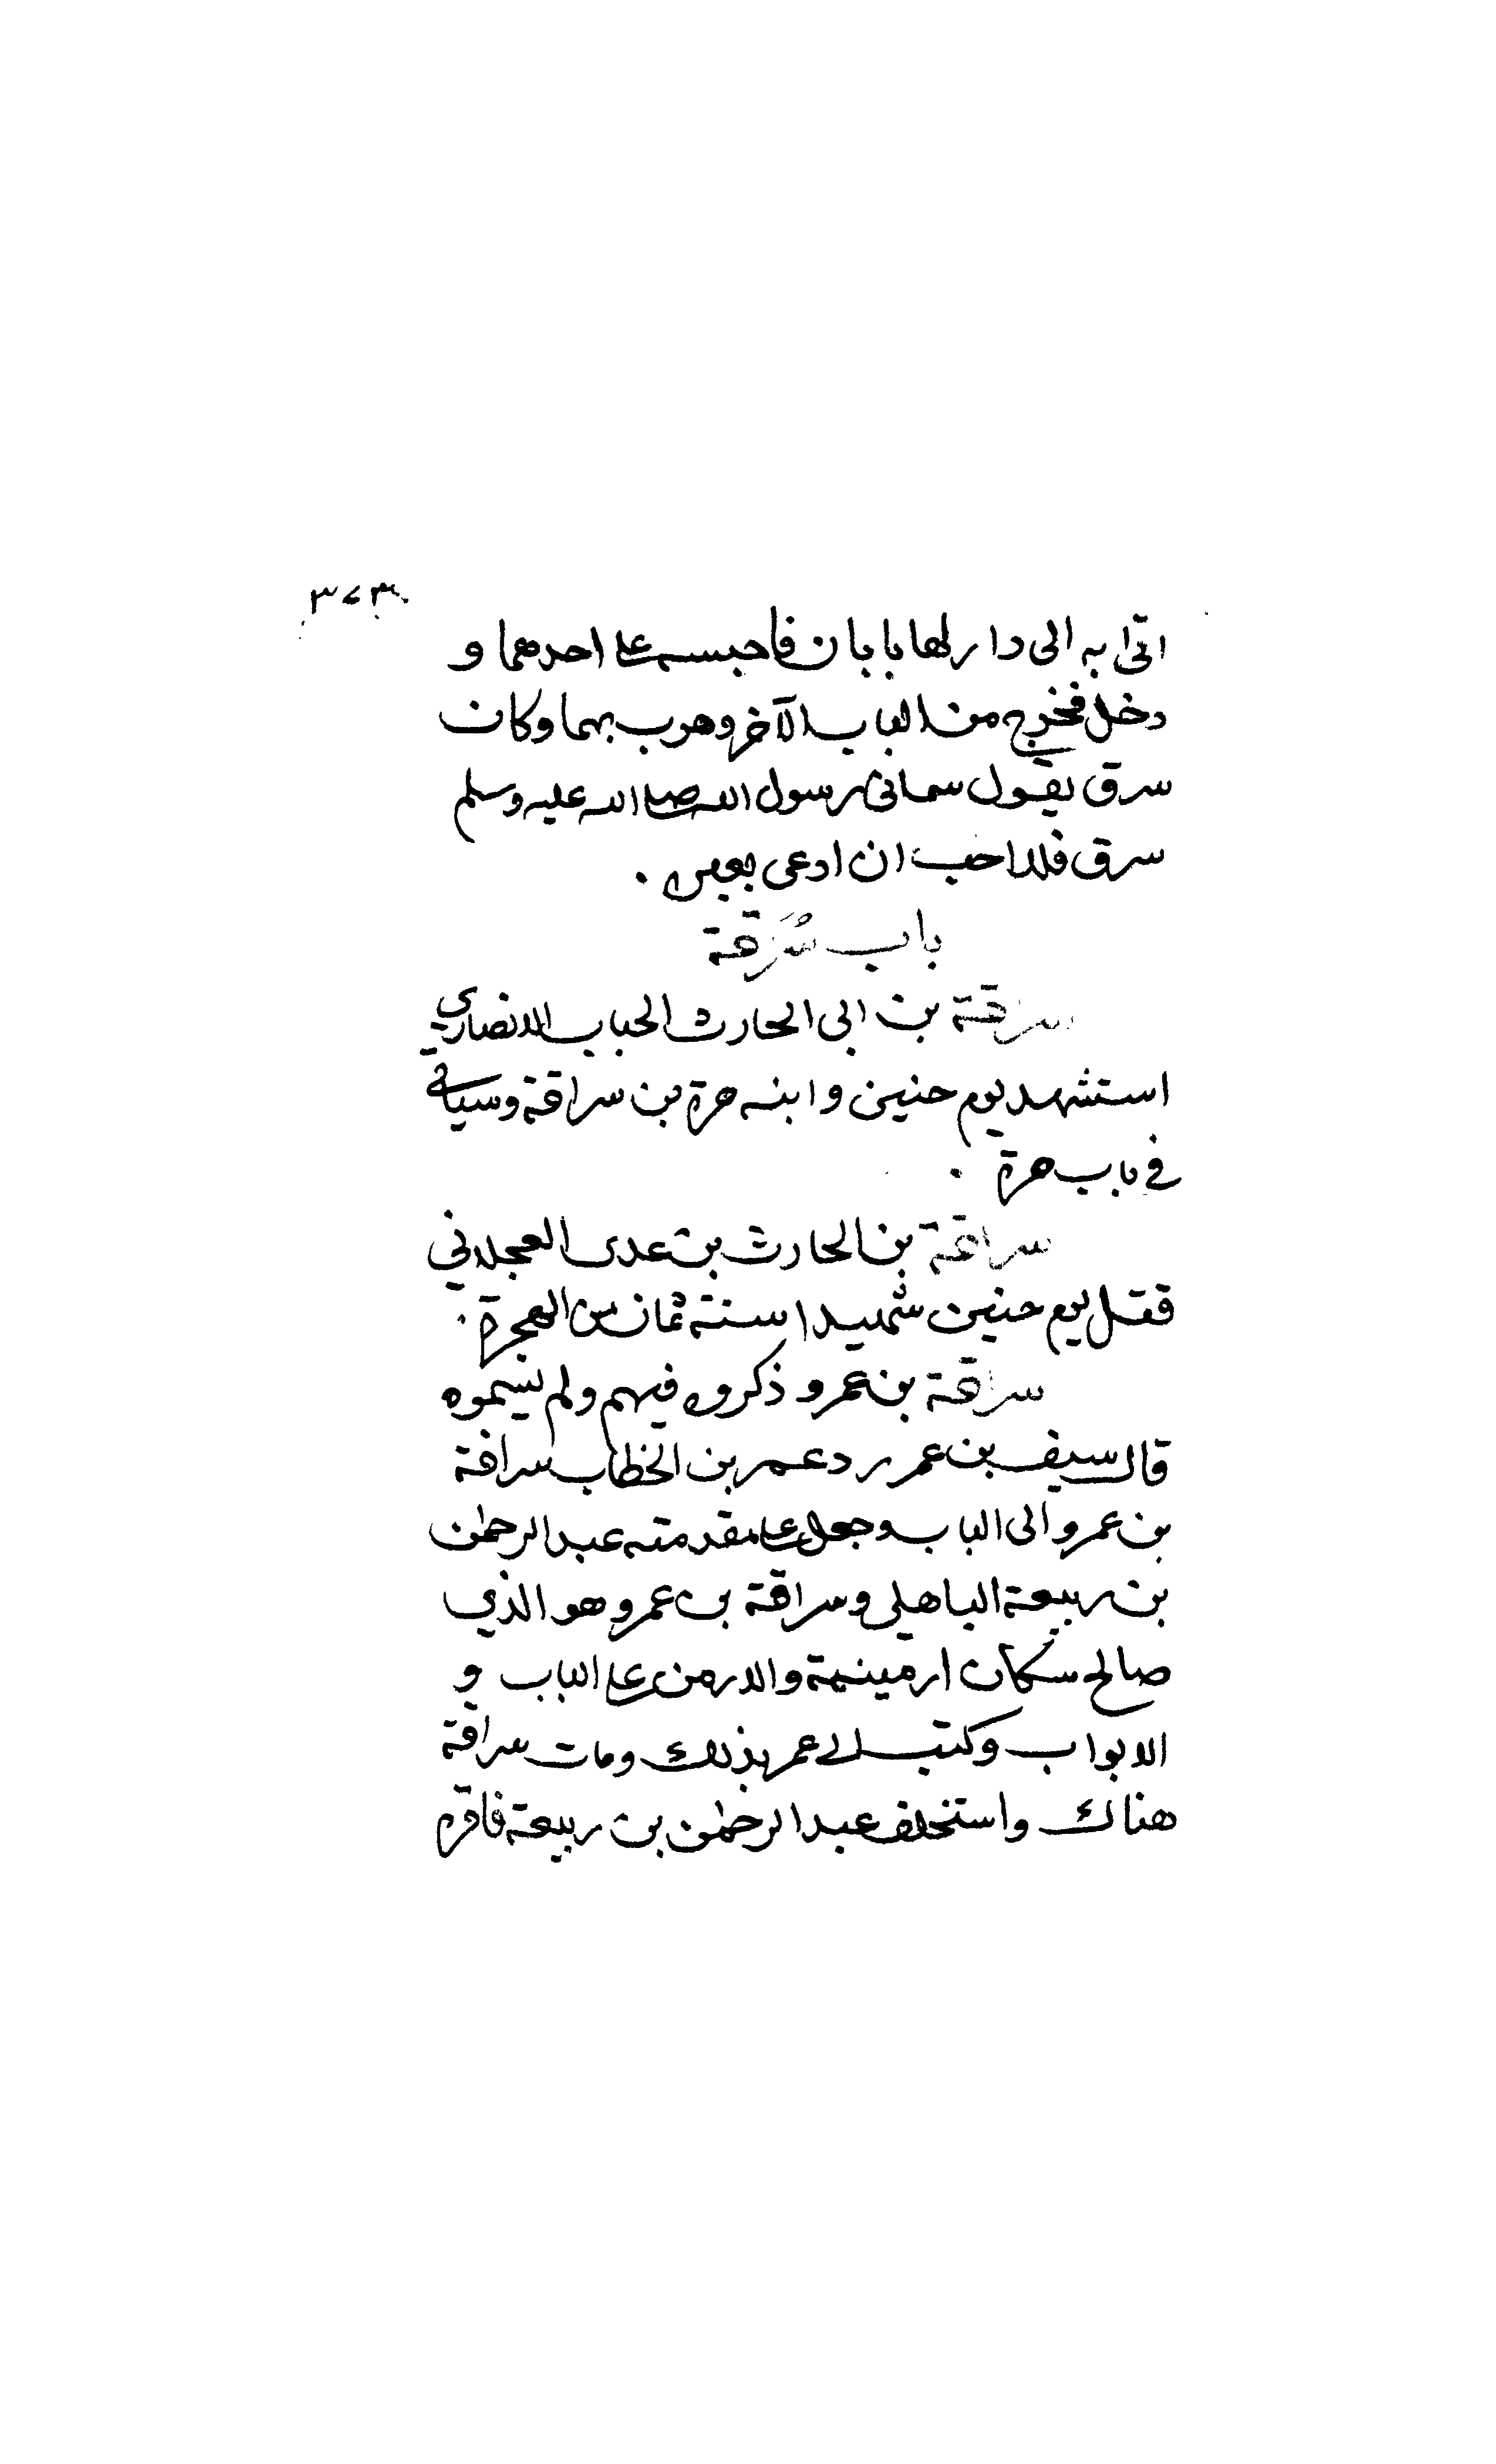 ٣٧٣
اتى به الى دار لها بابان فاحبسه على احدهما و
دخل فخرج من الباب الآخر وهرب بهما وكان
سرق يقول سمانى رسول الله صلى الله عليه وسلم
سرق فلا احب ان ادعى بغيره .
باب سرقة
سراقة بن ابى الحارث الحباب الانصاري
استشهد يوم حنين وابنه مرة بن سراقة وسياتى
فى باب مرة .
سراقة بن الحارث بن عدى العجلاني
قتل يوم حنين شهيدا سنة ثمان من الهجرة .
سراقة بن عمرو ذكروه فيهم ولم ينسبوه
قال سيف بن عمر رد عمر بن الخطاب سراقة
بن عمرو الى الباب وجعل على مقدمته عبد الرحمٰن
بن ربيعة الباهلى وسراقة بن عمرو هو الذي
صالح سكان ارمينية والارمن على الباب و
الابواب وكتب الى عمر بذلك ومات سراقة
هناك واستخلف عبد الرحمٰن بن ربيعة فاقره